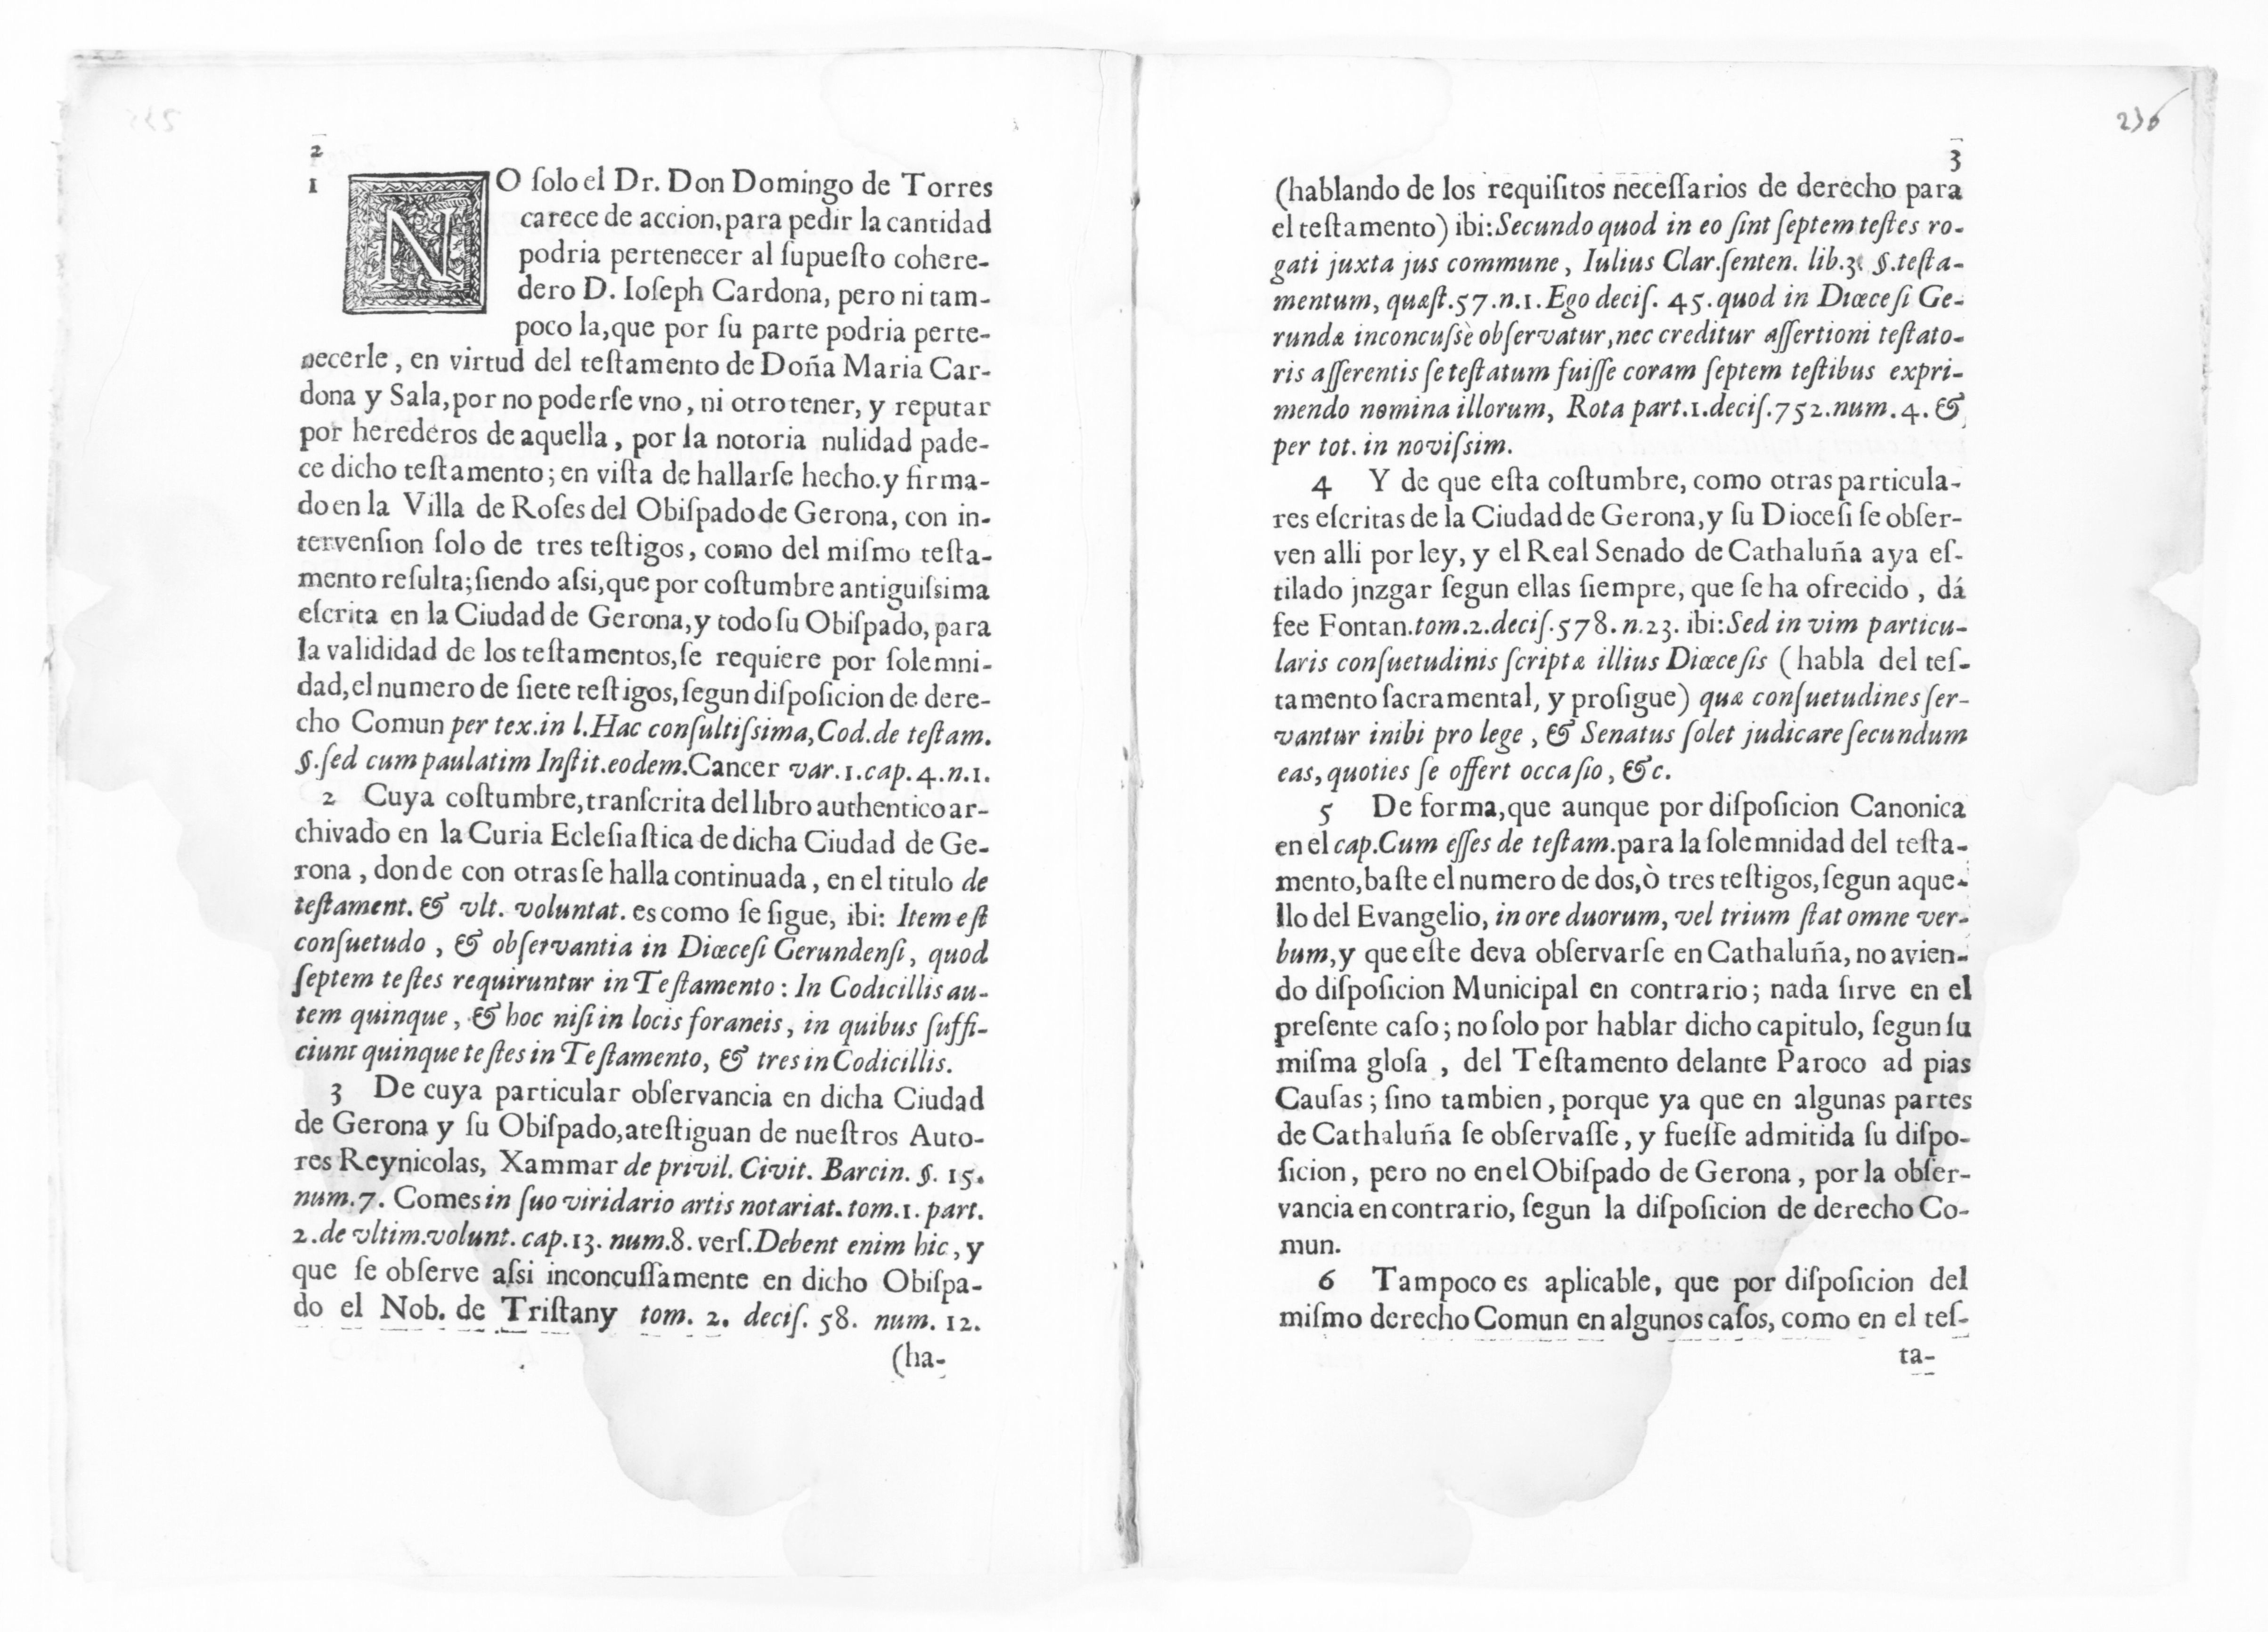 2
1 NO ſolo el Dr. Don Domingo de Torres
carece de accion, para pedir la cantidad
podria pertenecer al ſupueſto cohere-
dero D. Ioſeph Cardona, pero ni tam-
poco la, que por ſu parte podria perte-
necerle, en virtud del teſtamento de Doña Maria Car-
dona y Sala, por no poderſe vno, ni otro tener, y reputar
por herederos de aquella, por la notoria nulidad pade-
ce dicho teſtamento; en viſta de hallarſe hecho.y firma-
do en la Villa de Roſes del Obiſpado de Gerona, con in-
tervenſion ſolo de tres teſtigos, como del miſmo teſta-
mento reſulta; ſiendo aſsi, que por coſtumbre antiguiſsima
eſcrita en la Ciudad de Gerona, y todo ſu Obiſpado, para
la valididad de los teſtamentos, ſe requiere por ſolemni-
dad, el numero de ſiete teſtigos, ſegun diſpoſicion de dere-
cho Comun per tex. in l. Hac conſultiſsima, Cod. de teſtam.
§. ſed cum paulatim Inſtit. eodem. Cancer var. 1. cap. 4. n. 1.
2 Cuya coſtumbre, tranſcrita del libro authentico ar-
chivado en la Curia Ecleſiaſtica de dicha Ciudad de Ge-
rona, donde con otras ſe halla continuada, en el titulo de
teſtament. & vlt. voluntat. es como ſe ſigue, ibi: Item eſt
conſuetudo, & obſervantia in Diœceſi Gerundenſi, quod
ſeptem teſtes requiruntur in Teſtamento: In Codicillis au-
tem quinque, & hoc niſi in locis foraneis, in quibus ſuffi-
ciunt quinque teſtes in Teſtamento, & tres in Codicillis.
3 De cuya particular obſervancia en dicha Ciudad
de Gerona y ſu Obiſpado, ateſtiguan de nueſtros Auto-
res Reynicolas, Xammar de privil. Civit. Barcin. §. 15.
num. 7. Comes in ſuo viridario artis notariat. tom. 1. part.
2. de vltim. volunt. cap. 13. num. 8. verſ. Debent enim hic, y
que ſe obſerve aſsi inconcuſſamente en dicho Obiſpa-
do el Nob. de Triſtany tom. 2. deciſ. 58. num. 12.
(ha-
236
3
(hablando de los requiſitos neceſſarios de derecho para
el teſtamento) ibi: Secundo quod in eo ſint ſeptem teſtes ro-
gati juxta jus commune, Iulius Clar. ſenten. lib. 3. §. teſta-
mentum, quæſt. 57. n. 1. Ego deciſ. 45. quod in Diœceſi Ge-
rundæ inconcuſsè obſervatur, nec creditur aſſertioni teſtato-
ris aſſerentis ſe teſtatum fuiſſe coram ſeptem teſtibus expri-
mendo nomina illorum, Rota part. 1. deciſ. 752. num. 4. &
per tot. in noviſsim.
4 Y de que eſta coſtumbre, como otras particula-
res eſcritas de la Ciudad de Gerona, y ſu Dioceſi ſe obſer-
ven alli por ley, y el Real Senado de Cathaluña aya eſ-
tilado jnzgar ſegun ellas ſiempre, que ſe ha ofrecido, dá
fee Fontan. tom. 2. deciſ. 578. n. 23. ibi: Sed in vim particu-
laris conſuetudinis ſcriptæ illius Diœceſis (habla del teſ-
tamento ſacramental, y proſigue) quæ conſuetudines ſer-
vantur inibi pro lege, & Senatus ſolet judicare ſecundum
eas, quoties ſe offert occaſio, &c.
5 De forma, que aunque por diſpoſicion Canonica
en el cap. Cum eſſes de teſtam. para la ſolemnidad del teſta-
mento, baſte el numero de dos, ò tres teſtigos, ſegun aque-
llo del Evangelio, in ore duorum, vel trium ſtat omne ver-
bum, y que eſte deva obſervarſe en Cathaluña, no avien-
do diſpoſicion Municipal en contrario; nada ſirve en el
preſente caſo; no ſolo por hablar dicho capitulo, ſegun ſu
miſma gloſa, del Teſtamento delante Paroco ad pias
Cauſas; ſino tambien, porque ya que en algunas partes
de Cathaluña ſe obſervaſſe, y fueſſe admitida ſu diſpo-
ſicion, pero no en el Obiſpado de Gerona, por la obſer-
vancia en contrario, ſegun la diſpoſicion de derecho Co-
mun.
6 Tampoco es aplicable, que por diſpoſicion del
miſmo derecho Comun en algunos caſos, como en el teſ-
ta-